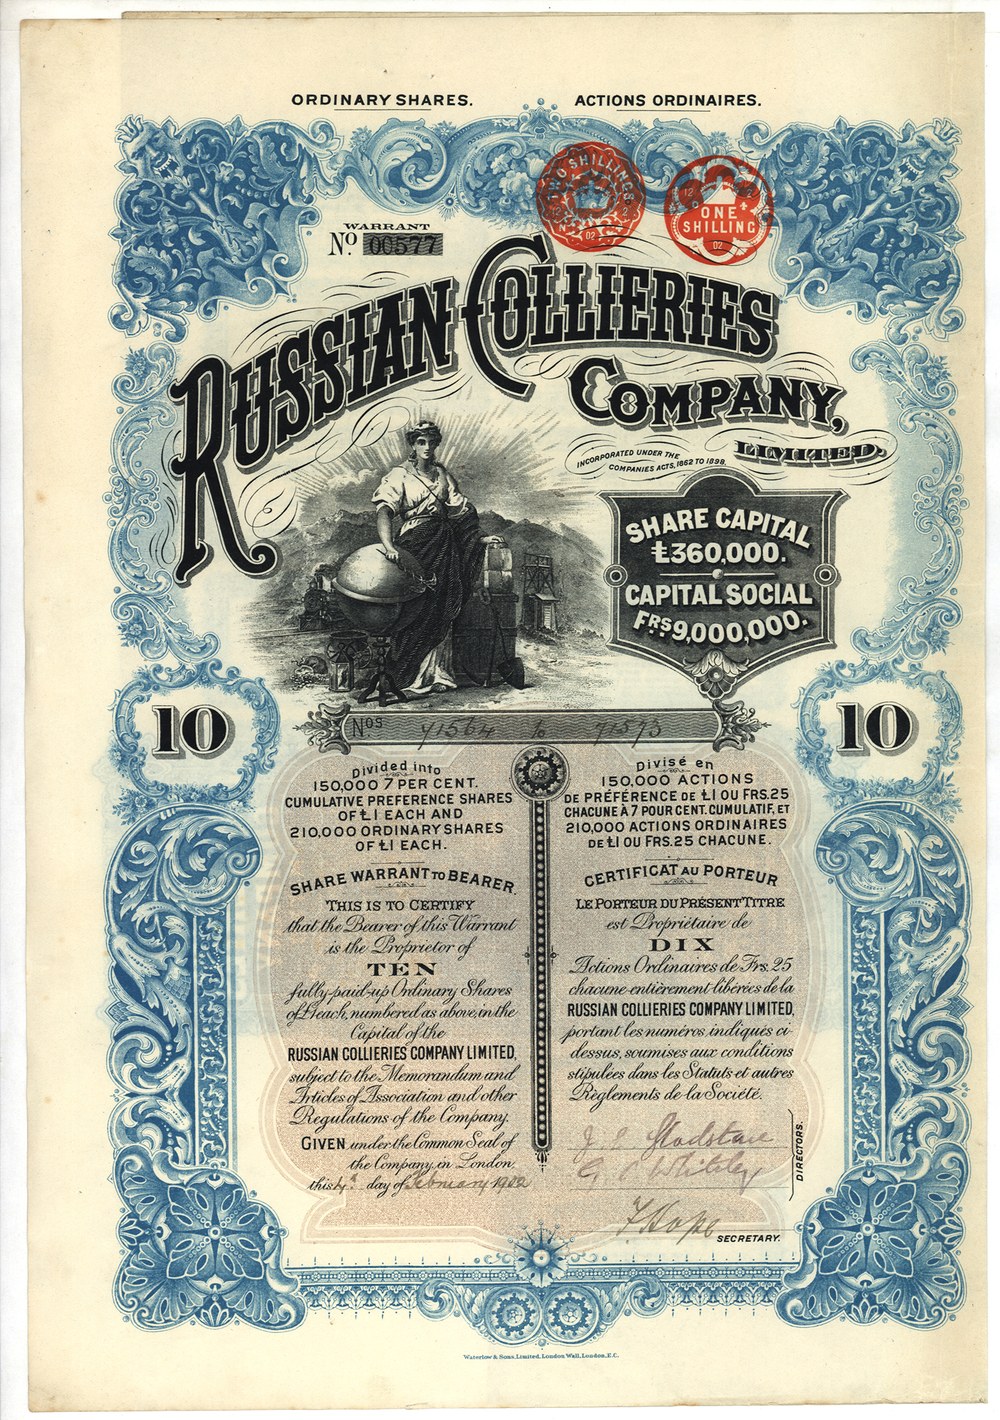 ORDINARY SHARES.
ACTIONS ORDINAIRES.
TWO SHILLINGS
02
ONE
SHILLING
02
WARRANT
No. 00577
RUSSIAN COLLIERIES
COMPANY,
LIMITED.
INCORPORATED UNDER THE
COMPANIES ACTS, 1862 TO 1898.
SHARE CAPITAL
£360,000.
CAPITAL SOCIAL
FRS 9,000,000.
10
10
Nos 71564 to 71573
Divided into
150,000 7 PER CENT.
CUMULATIVE PREFERENCE SHARES
OF £1 EACH AND
210,000 ORDINARY SHARES
OF £1 EACH.
SHARE WARRANT TO BEARER.
THIS IS TO CERTIFY
that the Bearer of this Warrant
is the Proprietor of
TEN
fully-paid-up Ordinary Shares
of £1 each, numbered as above, in the
Capital of the
RUSSIAN COLLIERIES COMPANY LIMITED,
subject to the Memorandum and
Articles of Association and other
Regulations of the Company.
GIVEN under the Common Seal of
the Company, in London,
this 4th day of February 1902
Divisé en
150,000 ACTIONS
DE PRÉFÉRENCE DE £1 OU FRS. 25
CHACUNE À 7 POUR CENT. CUMULATIF, ET
210,000 ACTIONS ORDINAIRES
DE £1 OU FRS. 25 CHACUNE.
CERTIFICAT AU PORTEUR
LE PORTEUR DU PRÉSENT TITRE
est Propriétaire de
DIX
Actions Ordinaires de Frs. 25
chacune entièrement libérées de la
RUSSIAN COLLIERIES COMPANY LIMITED,
portant les numéros indiqués ci-
dessus, soumises aux conditions
stipulées dans les Statuts et autres
Règlements de la Société.
Gladstone
Whiteley
DIRECTORS.
F Hope
SECRETARY.
Waterlow & Sons, Limited, London Wall, London, E.C.